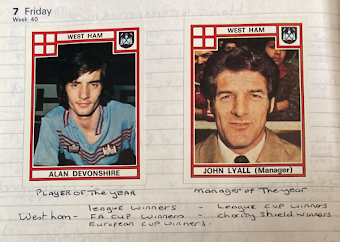 7 Friday
Week 40
WEST HAM
WEST HAM
ALAN DEVONSHIRE
JOHN LYALL (Manager)
PLAYER OF The YEAR
manager of The year
league winners - League cup winners
West ham - FA cup winners - charity shield winners
European cup winners.